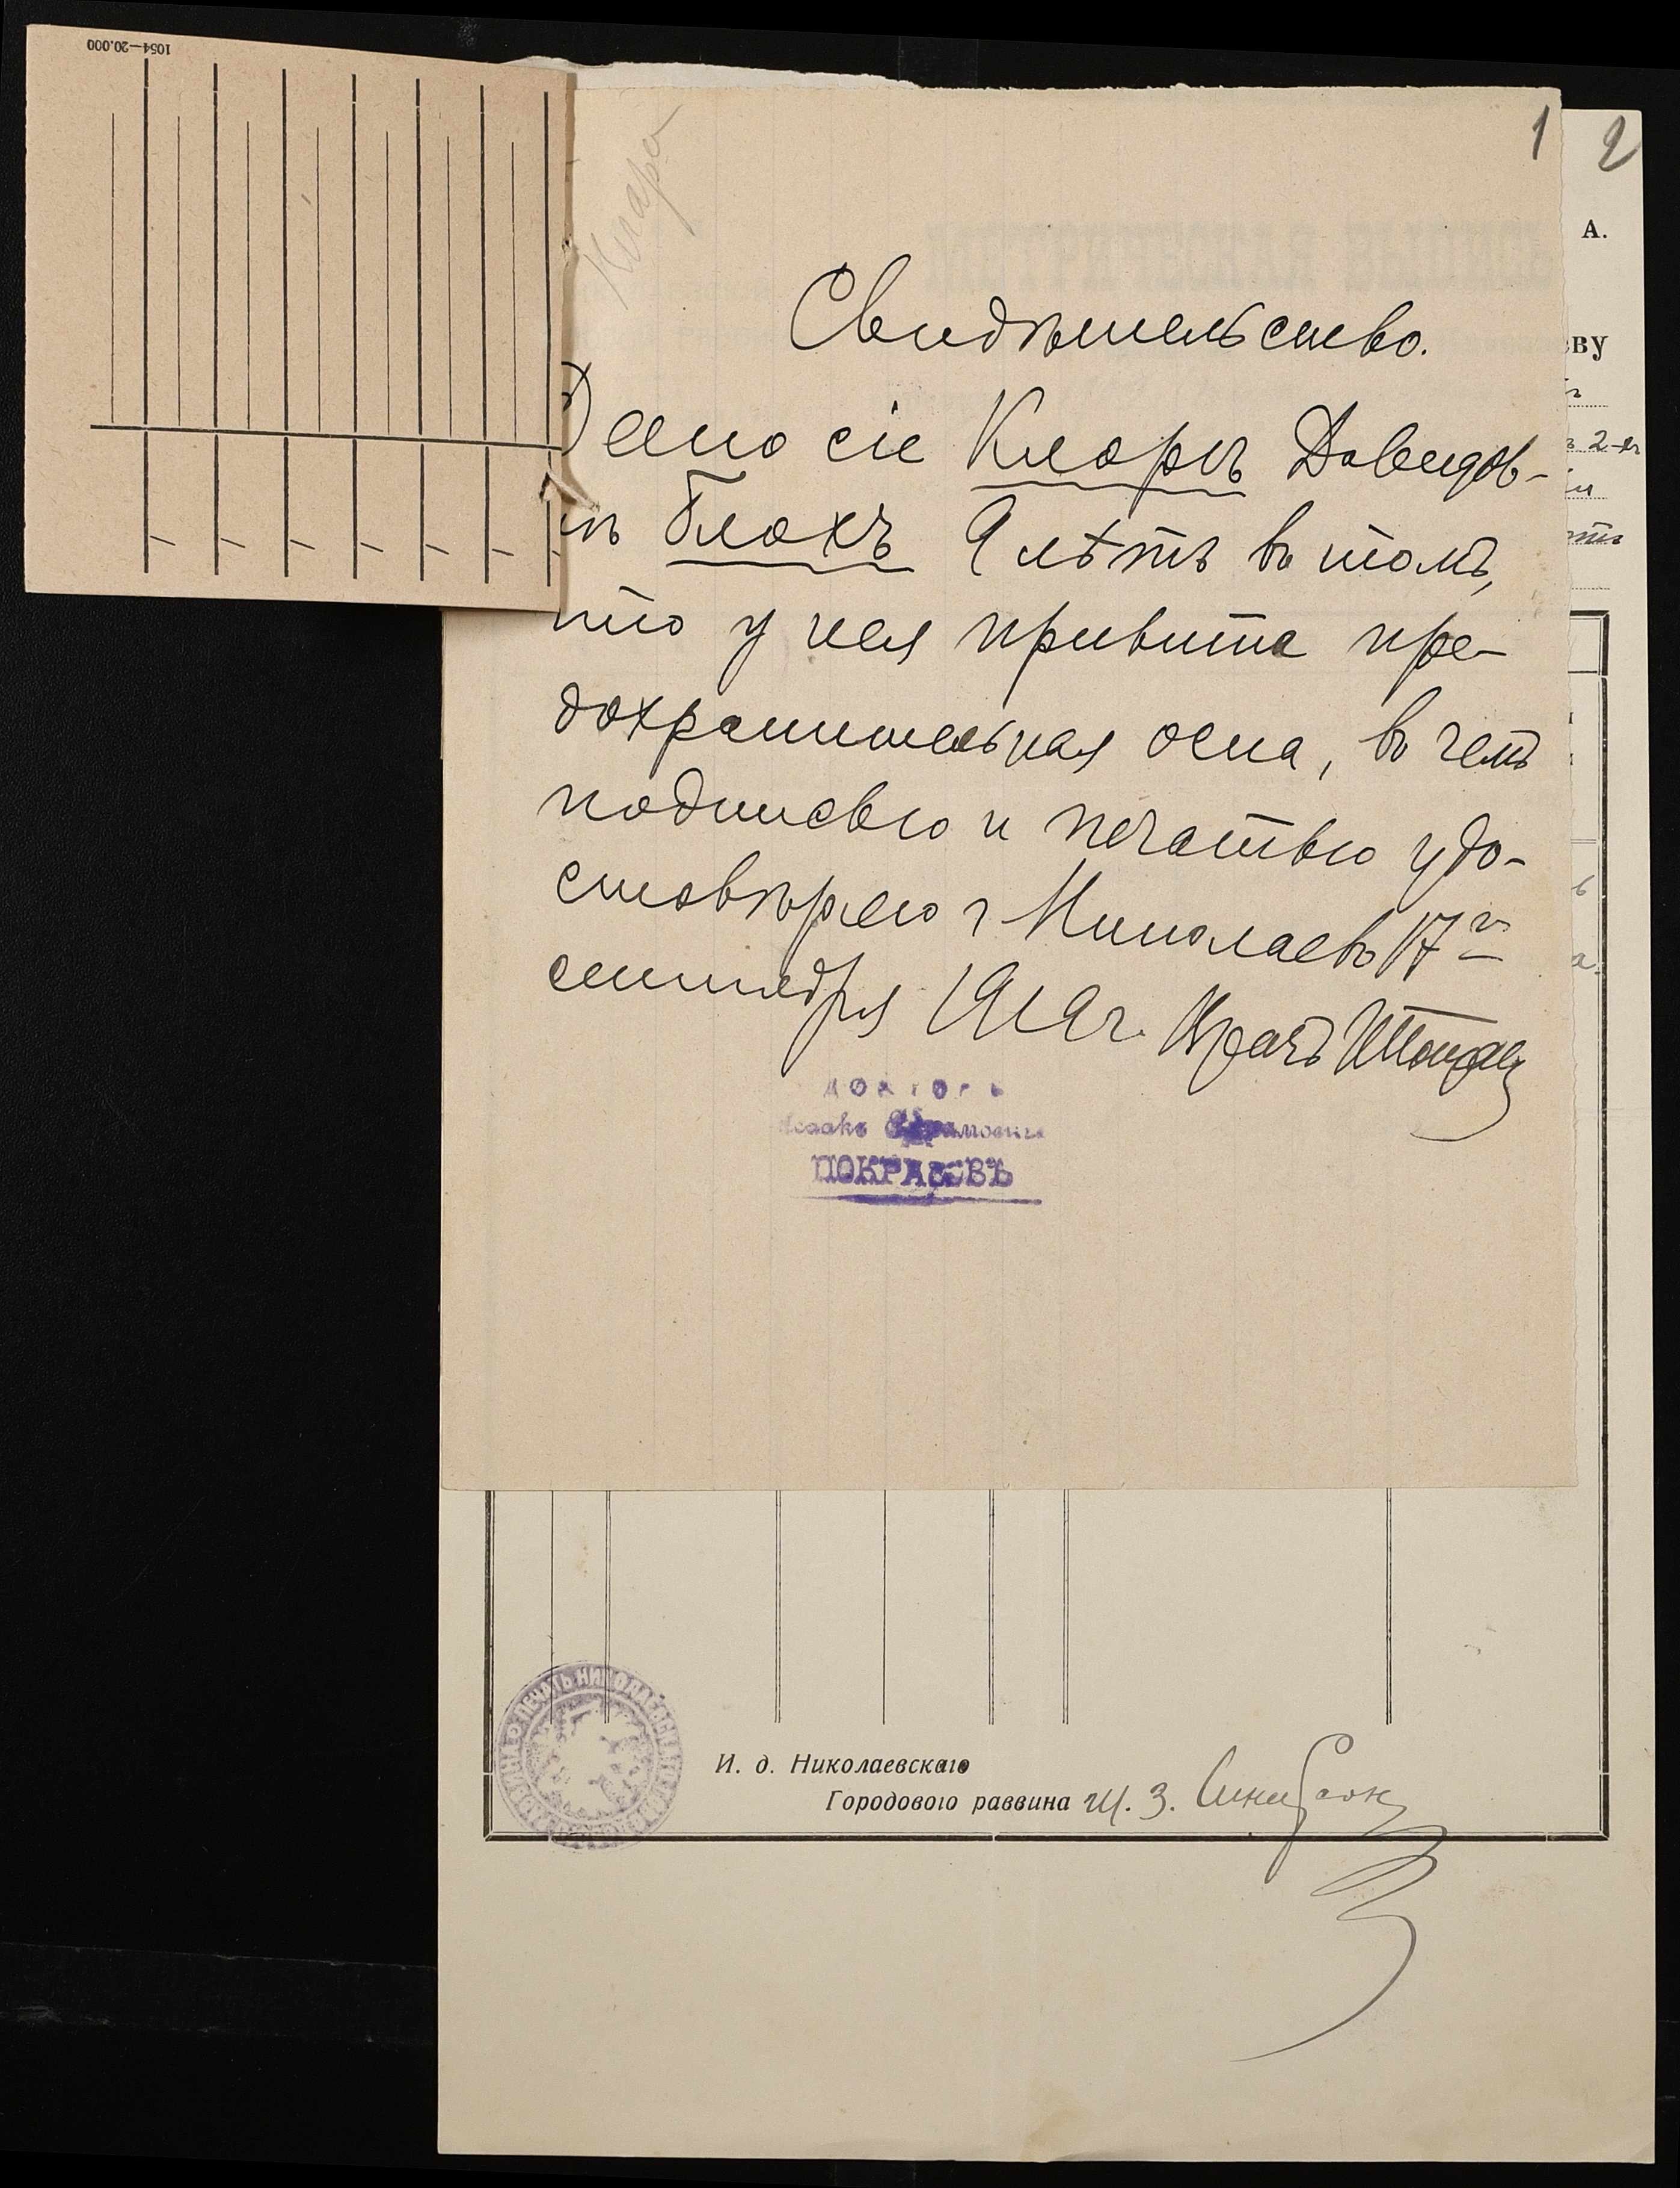 1054—20.000
1 2
А.
Свидѣтельство.
Дано сіе Кларѣ Давидов-
нѣ Блохъ 9 лѣтъ въ томъ,
что у нея привита пре-
дохранительная оспа, въ чемъ
подписью и печатью удо-
стовѣряю г Николаевъ 17го
сентября 1919г. Врачъ
ДОКТОРЪ
Исаакъ Абрамовичъ
ПОКРАСОВЪ
ПЕЧАТЬ НИКОЛАЕВСК
И. д. Николаевскаго
Городового раввина Ш. З.